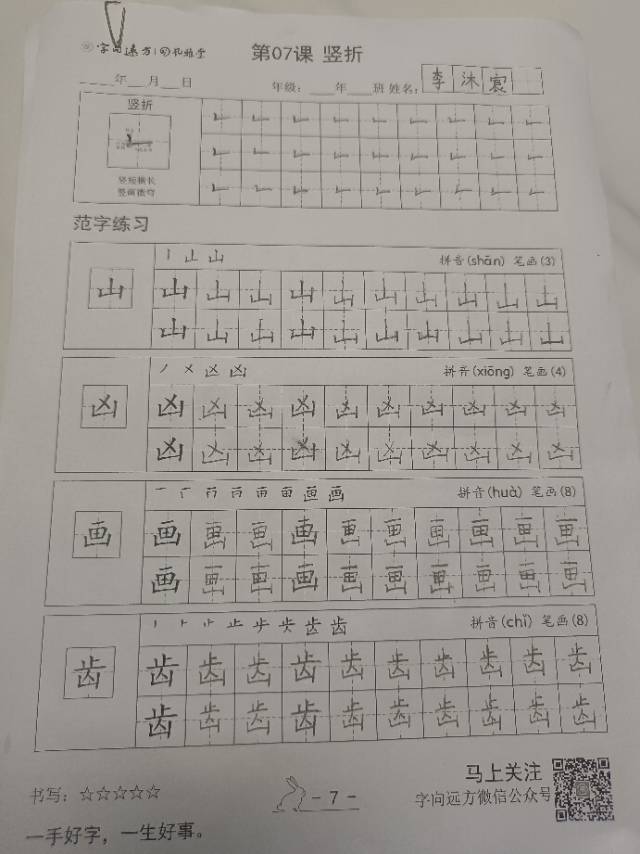 字向远方
第07课 竖折
年 月 日
年级： 年 班 姓名： 李沐宸
竖折
竖短横长
竖画微弯
范字练习
山 丨 山 拼音(shān) 笔画(3)
山 山 山 山 山 山 山 山 山 山
山 山 山 山 山 山 山 山 山 山
凶 ノ 㐅 凶 凶 拼音(xiōng) 笔画(4)
凶 凶 凶 凶 凶 凶 凶 凶 凶 凶
凶 凶 凶 凶 凶 凶 凶 凶 凶 凶
画 一 画 画 拼音(huà) 笔画(8)
画 画 画 画 画 画 画 画 画 画
画 画 画 画 画 画 画 画 画 画
齿 丨 ⺊ 止 齿 齿 拼音(chǐ) 笔画(8)
齿 齿 齿 齿 齿 齿 齿 齿 齿 齿
齿 齿 齿 齿 齿 齿 齿 齿 齿 齿
马上关注
书写：☆☆☆☆☆ - 7 - 字向远方微信公众号
一手好字，一生好事。